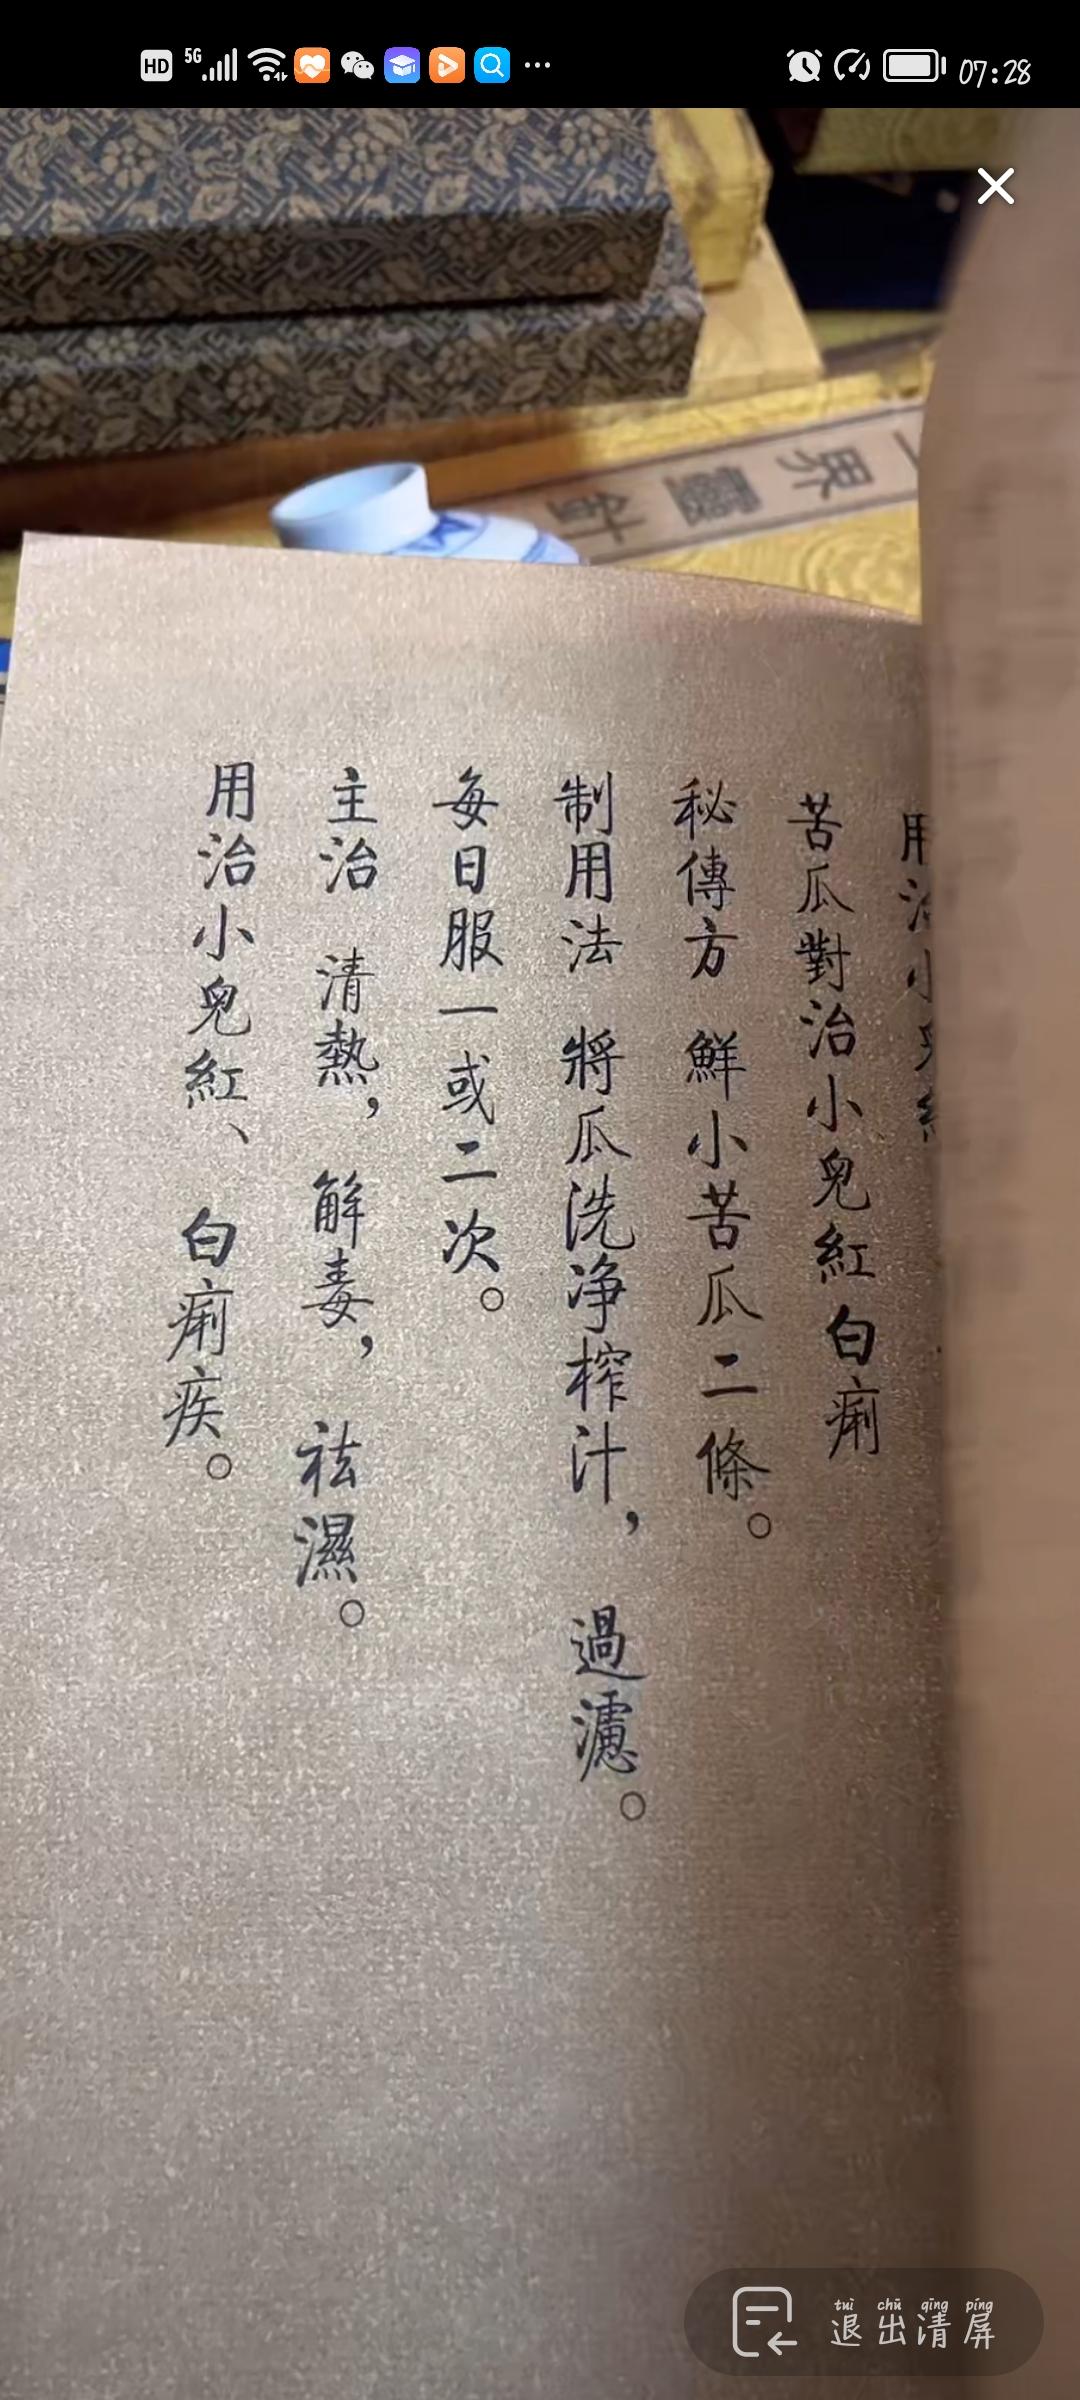 HD 5G 07:28
一界靈針
苦瓜對治小兒紅白痢
秘傳方 鮮小苦瓜二條。
制用法 將瓜洗净榨汁，過濾。
每日服一或二次。
主治 清熱，解毒，祛濕。
用治小兒紅、白痢疾。
tuì chū qīng píng
退出清屏